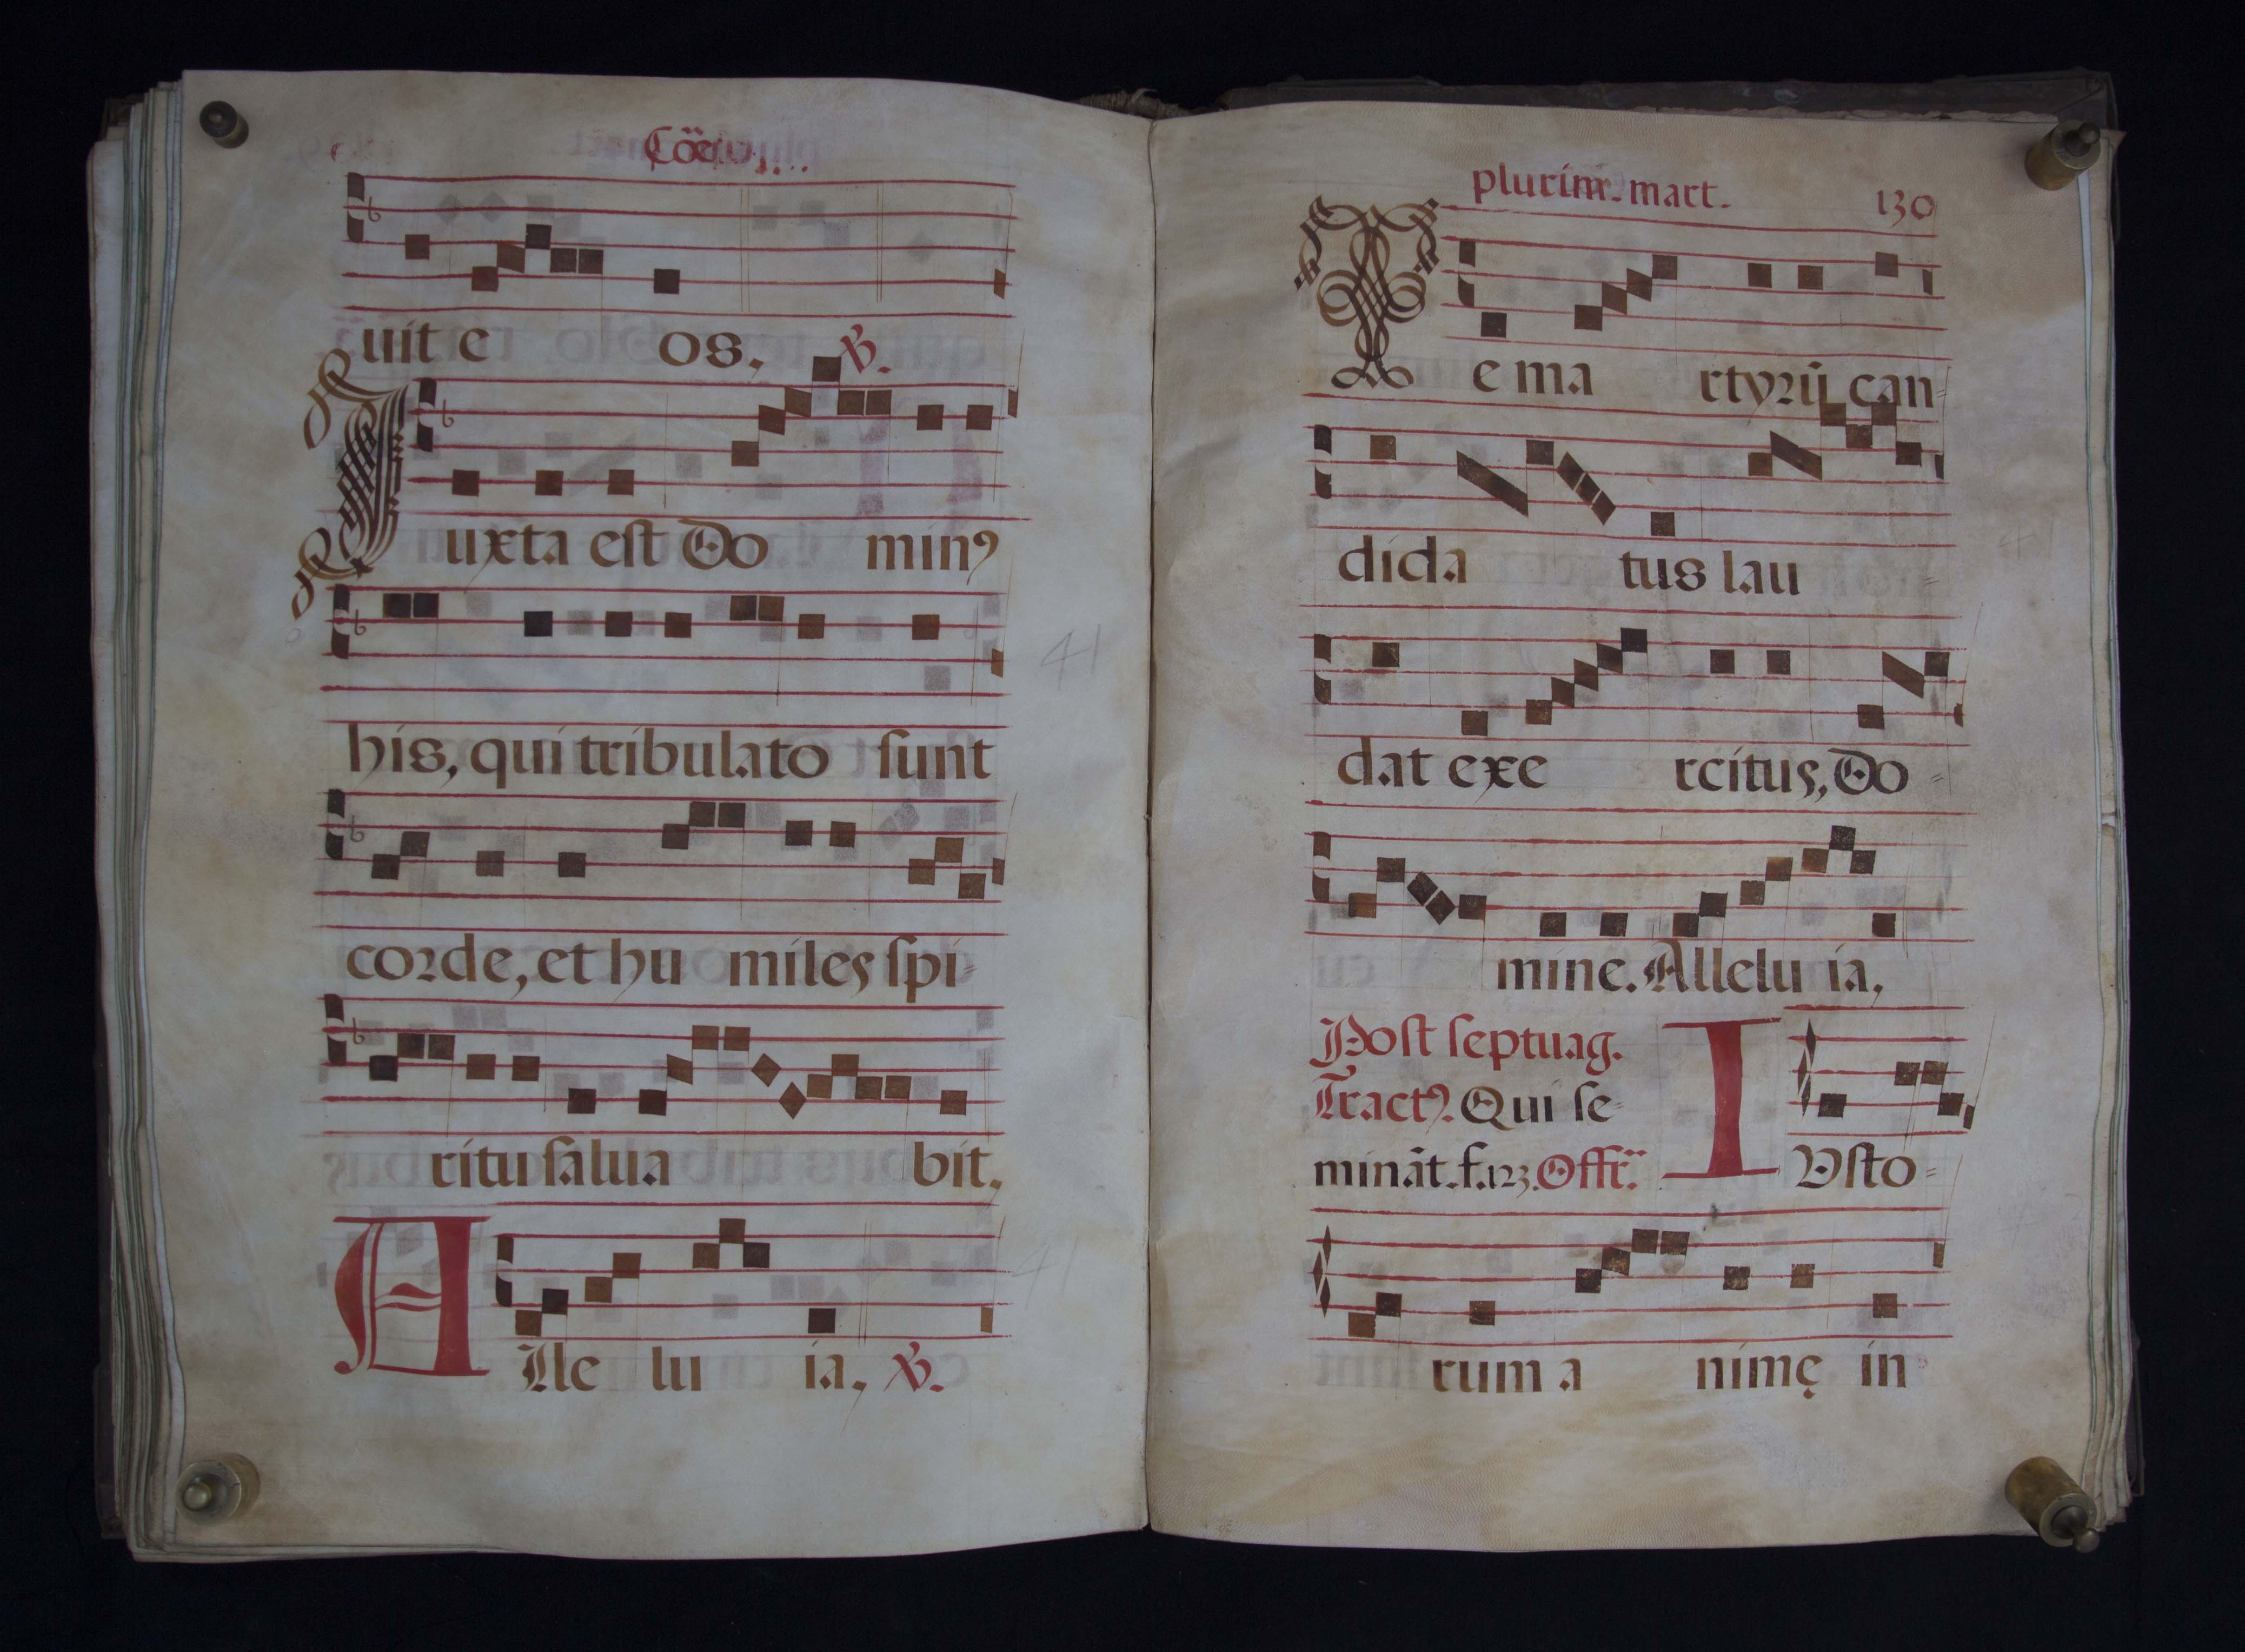 uit e os, ℣.
Juxta est Do minꝰ
his, qui tribulato sunt
corde, et hu miles spi-
ritu salua bit.
Alle lu ia, ℣.
plurim. mart. 130
Te ma rtyrũ can-
dida tus lau
dat exe rcitus, Do-
mine. Allelu ia,
Post septuag.
Tractꝰ. Qui se-
minãt. f. 123. Offr.
IVsto-
rum a nimę in